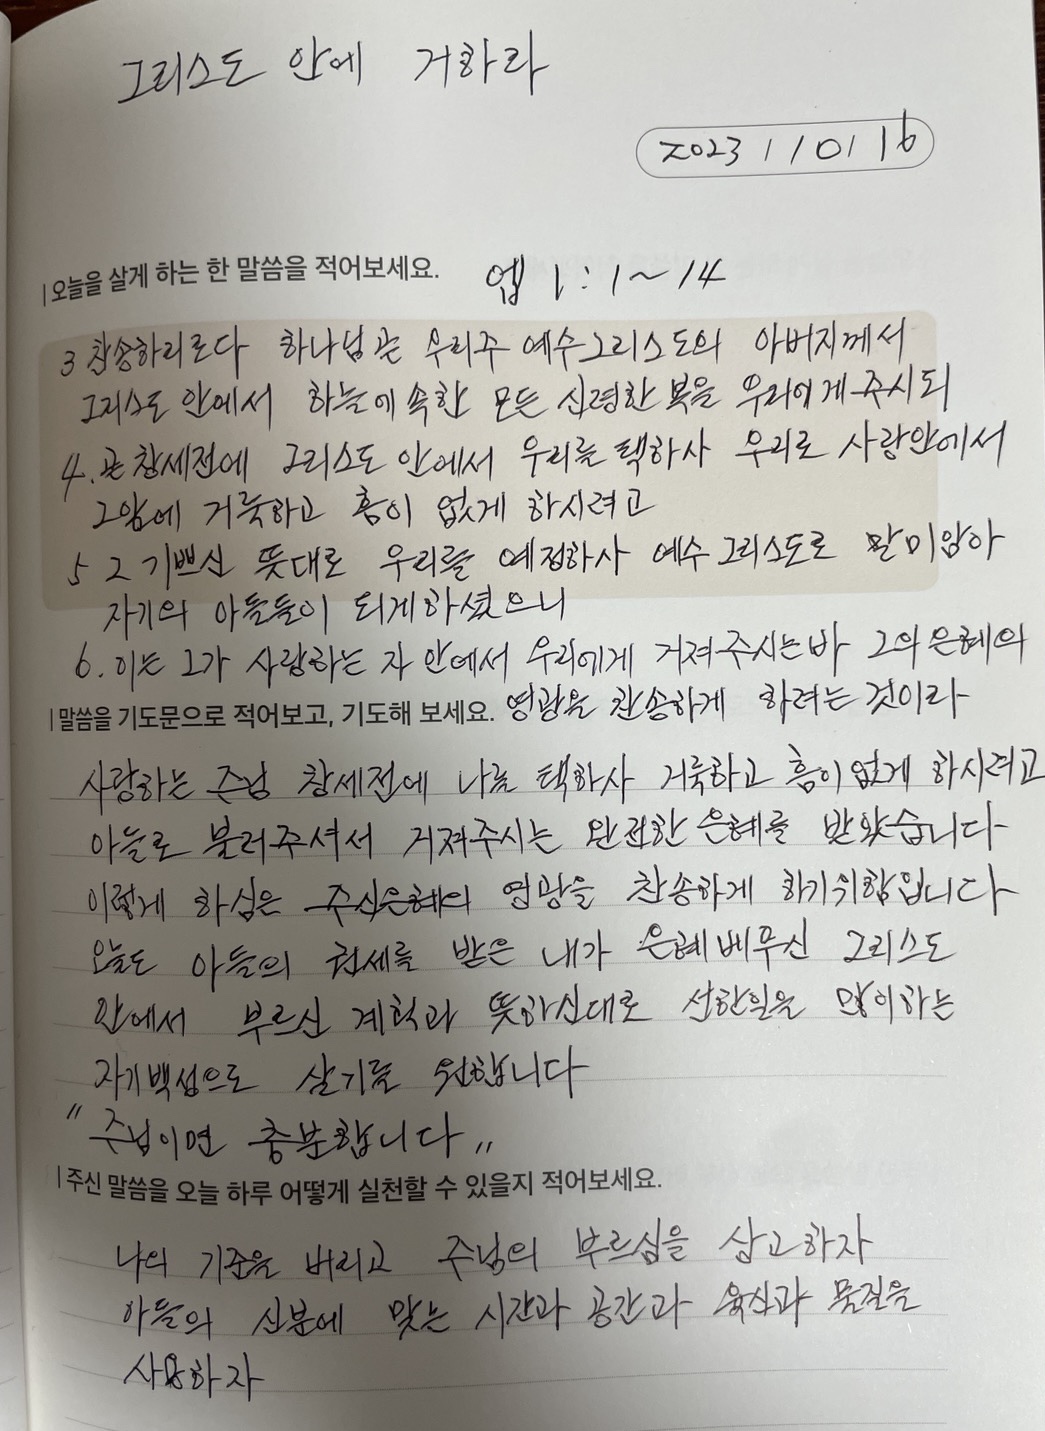 그리스도 안에 거하라
2023 / 10 / 16
오늘을 살게 하는 한 말씀을 적어보세요. 엡 1 : 1 ~ 14
3 찬송하리로다 하나님 곧 우리주 예수그리스도의 아버지께서
그리스도 안에서 하늘에 속한 모든 신령한 복을 우리에게 주시되
4. 곧 창세전에 그리스도 안에서 우리를 택하사 우리로 사랑안에서
그앞에 거룩하고 흠이 없게 하시려고
5 그 기쁘신 뜻대로 우리를 예정하사 예수 그리스도로 말미암아
자기의 아들들이 되게하셨으니
6. 이는 그가 사랑하는 자 안에서 우리에게 거져주시는바 그의 은혜의
영광을 찬송하게 하려는 것이라
말씀을 기도문으로 적어보고, 기도해 보세요.
사랑하는 주님 창세전에 나를 택하사 거룩하고 흠이없게 하시려고
아들로 불러주셔서 거져주시는 완전한 은혜를 받았습니다
이렇게 하심은 주신은혜의 영광을 찬송하게 하기위함입니다
오늘도 아들의 권세를 받은 내가 은혜베푸신 그리스도
안에서 부르신 계획과 뜻하신대로 선한일을 많이하는
자기백성으로 살기를 원합니다
"주님이면 충분합니다"
주신 말씀을 오늘 하루 어떻게 실천할 수 있을지 적어보세요.
나의 기준을 버리고 주님의 부르심을 상고하자
아들의 신분에 맞는 시간과 공간과 육신과 물질을
사용하자